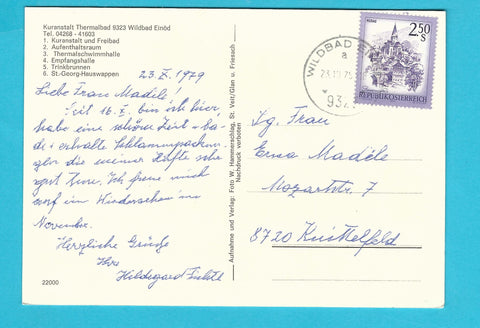 Kuranstalt Thermalbad 9323 Wildbad Einöd
Tel. 04268 - 41603
1. Kuranstalt und Freibad
2. Aufenthaltsraum
3. Thermalschwimmhalle
4. Empfangshalle
5. Trinkbrunnen
6. St.-Georg-Hauswappen
23.X.1979
Liebe Frau Madéle!
Seit 16.X. bin ich hier,
habe eine schöne Zeit u. ba-
de u. erhalte Schlammpackun-
gen die meiner Hüfte sehr
gut tun. Ich freue mich
auf ein Wiedersehen im
November.
Herzliche Grüße
Ihre
Hildegard
22000
Aufnahme und Verlag: Foto W. Hammerschlag, St. Veit/Glan u. Friesach
Nachdruck verboten
WILDBAD
a
932
2.50 S
REPUBLIK ÖSTERREICH
Sg. Frau
Erna Madéle
Mozartstr. 7
8720 Knittelfeld